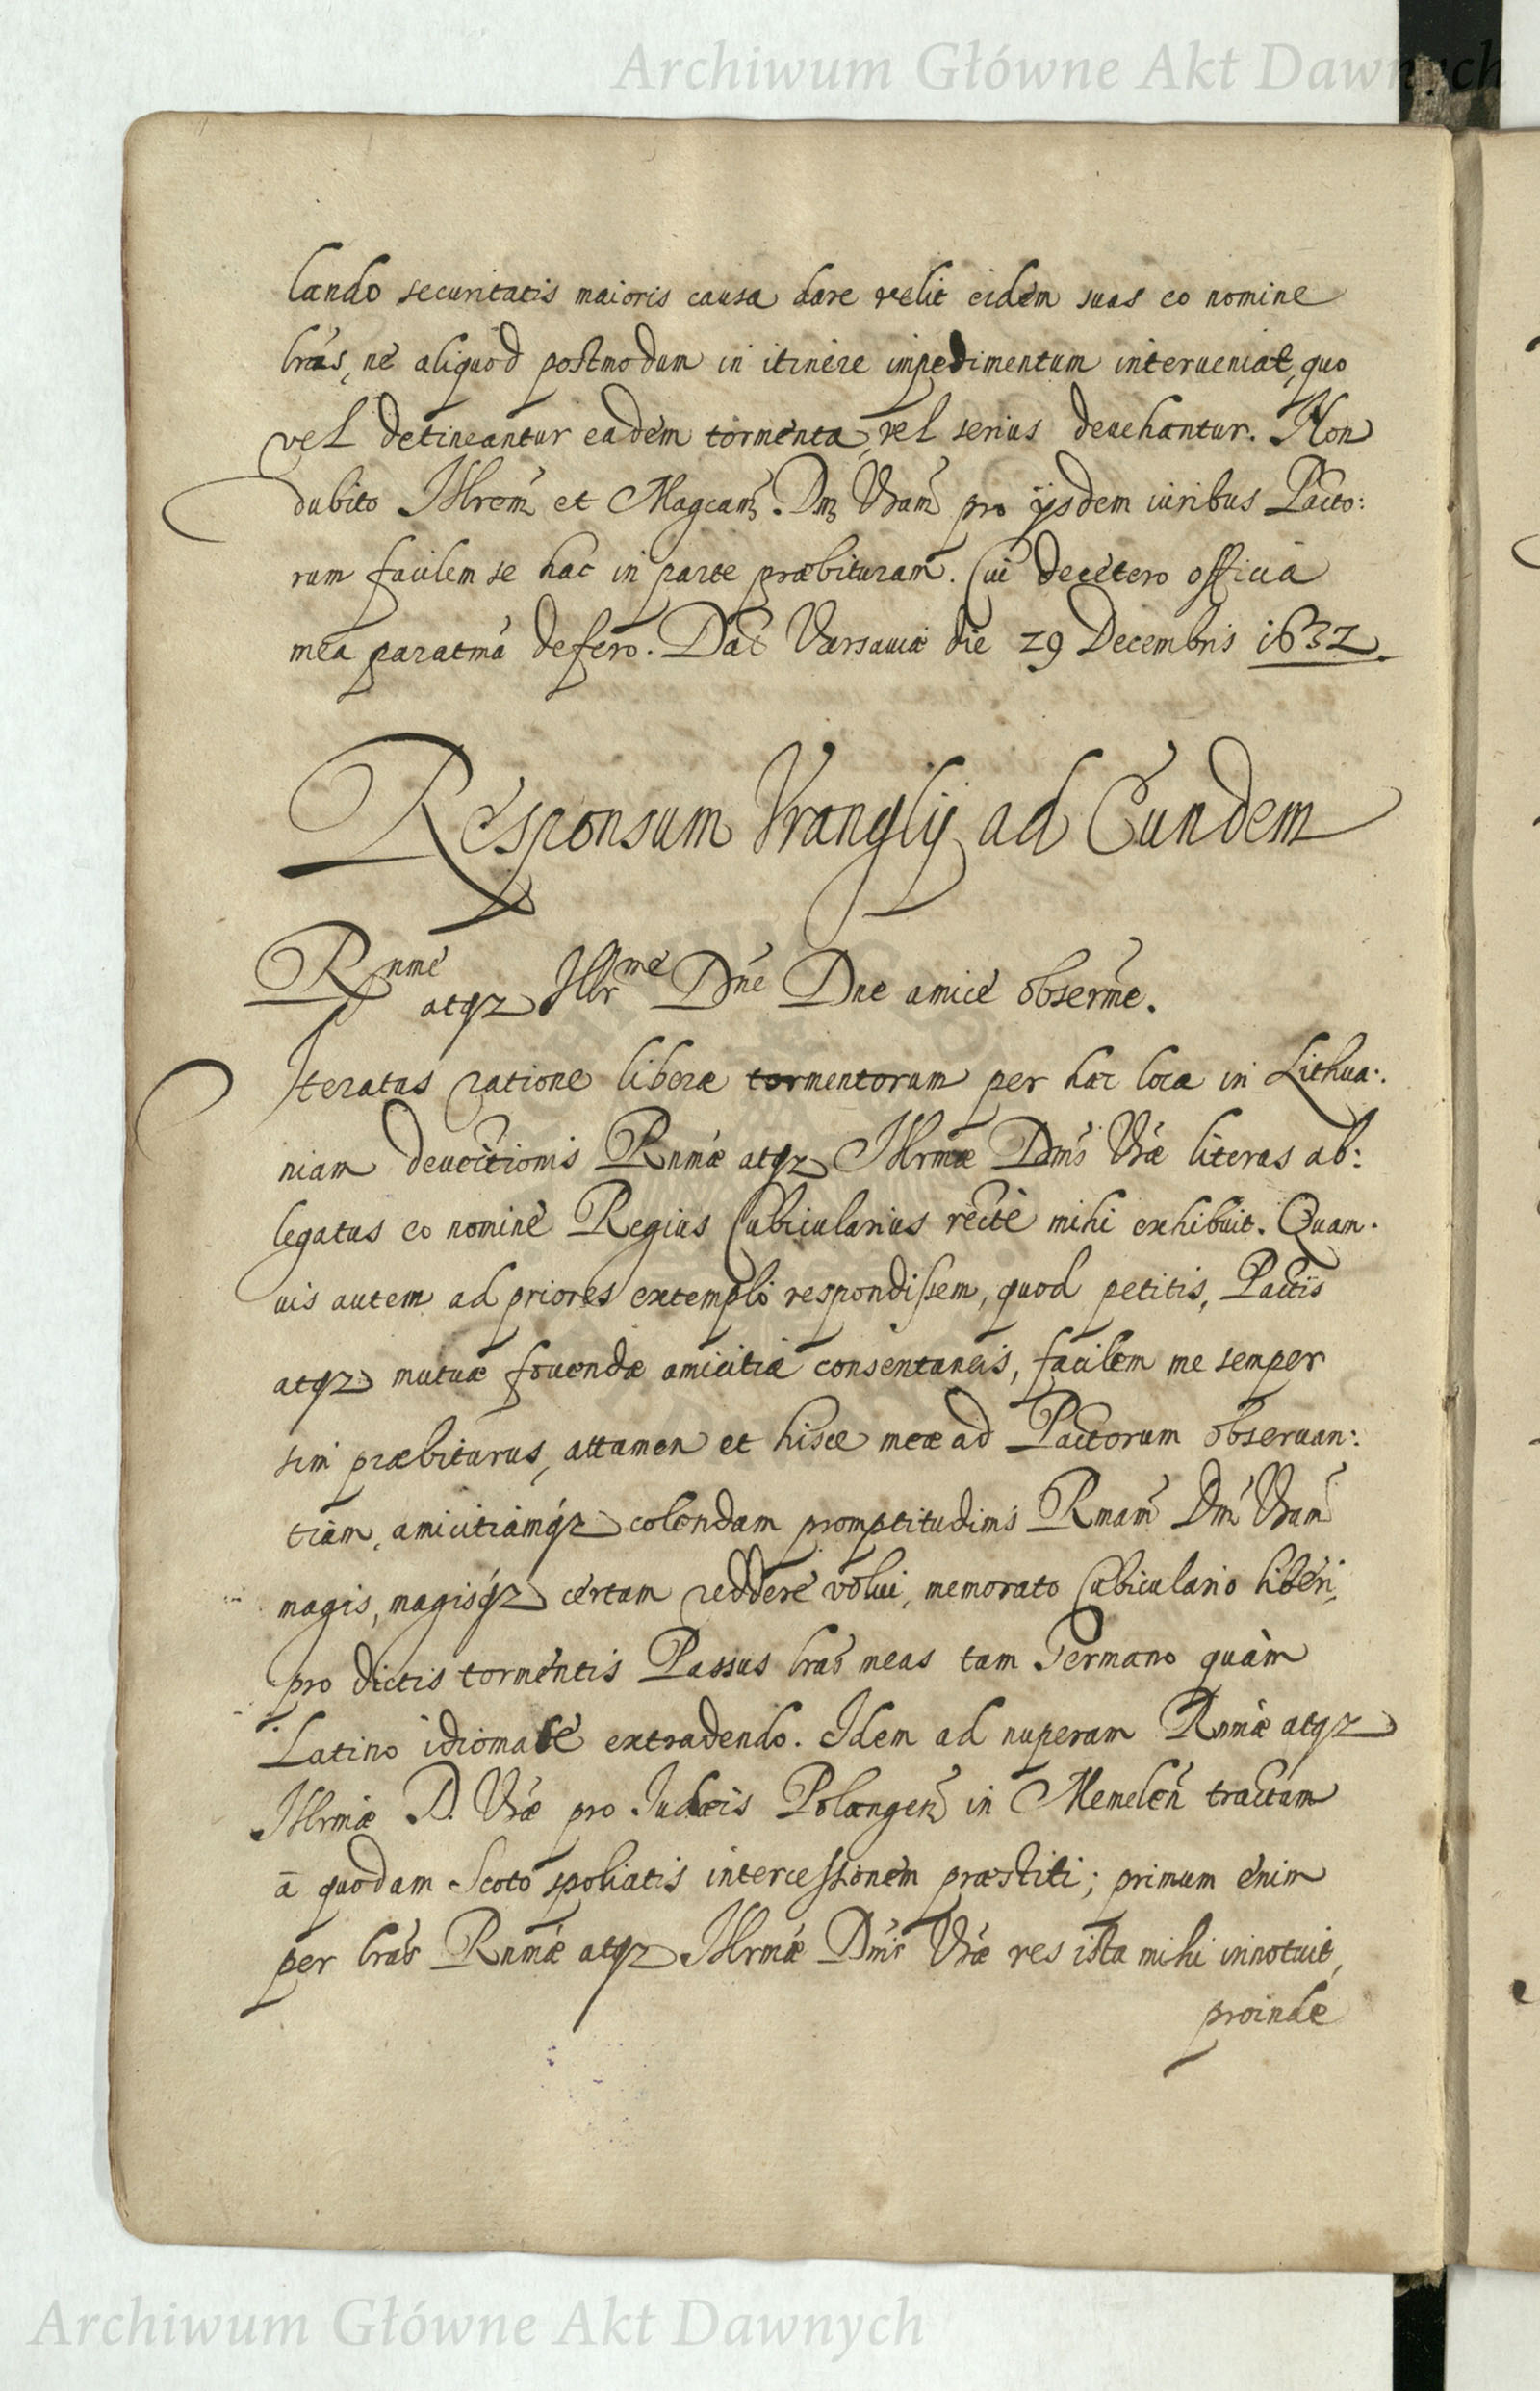 Archiwum Główne Akt Dawnych
lando securitatis maioris causa dare velit eidem suas eo nomine
lras, ne aliquod postmodum in itinere impedimentum interueniat, quo
vel detineantur eadem tormenta, vel serius deuehantur. Non
dubito Illrem et Magcam Dm Vram pro ijsdem iuribus Pacto:
rum facilem se hac in parte præbituram. Cui decetero officia
mea paratma defero. Dat Varsauiæ die 29 Decembris 1632.
Responsum Vranglij ad Eundem
Rnme atqz Illrme Dne Dne amice obserme.
Iteratas ratione liberæ tormentorum per hac loca in Lithua:
niam deuectionis Rnmæ atqz Illrmæ Dmis Vræ literas ab:
legatus eo nomine Regius Cubicularius recte mihi exhibuit. Quam:
uis autem ad priores extemplo respondissem, quod petitis, Pactis
atqz mutuæ fouendæ amicitiæ consentaneis, facilem me semper
sim præbiturus, attamen et hisce meæ ad Pactorum obseruan:
tiam, amicitiamqz colendam promptitudinis Rmam Dm Vram
magis, magisqz certam reddere volui, memorato Cubiculario liberi,
pro dictis tormentis Passus lras meas tam Germano quàm
Latino idiomate extradendo. Idem ad nuperam Rnmæ atqz
Illrmæ D. Vræ pro Judæis Polangen in Memelen tractum
a quodam Scoto spoliatis intercessionem præstiti; primum enim
per lras Rnmæ atqz Illrmæ Dmis Vræ res ista mihi innotuit,
proinde
Archiwum Główne Akt Dawnych